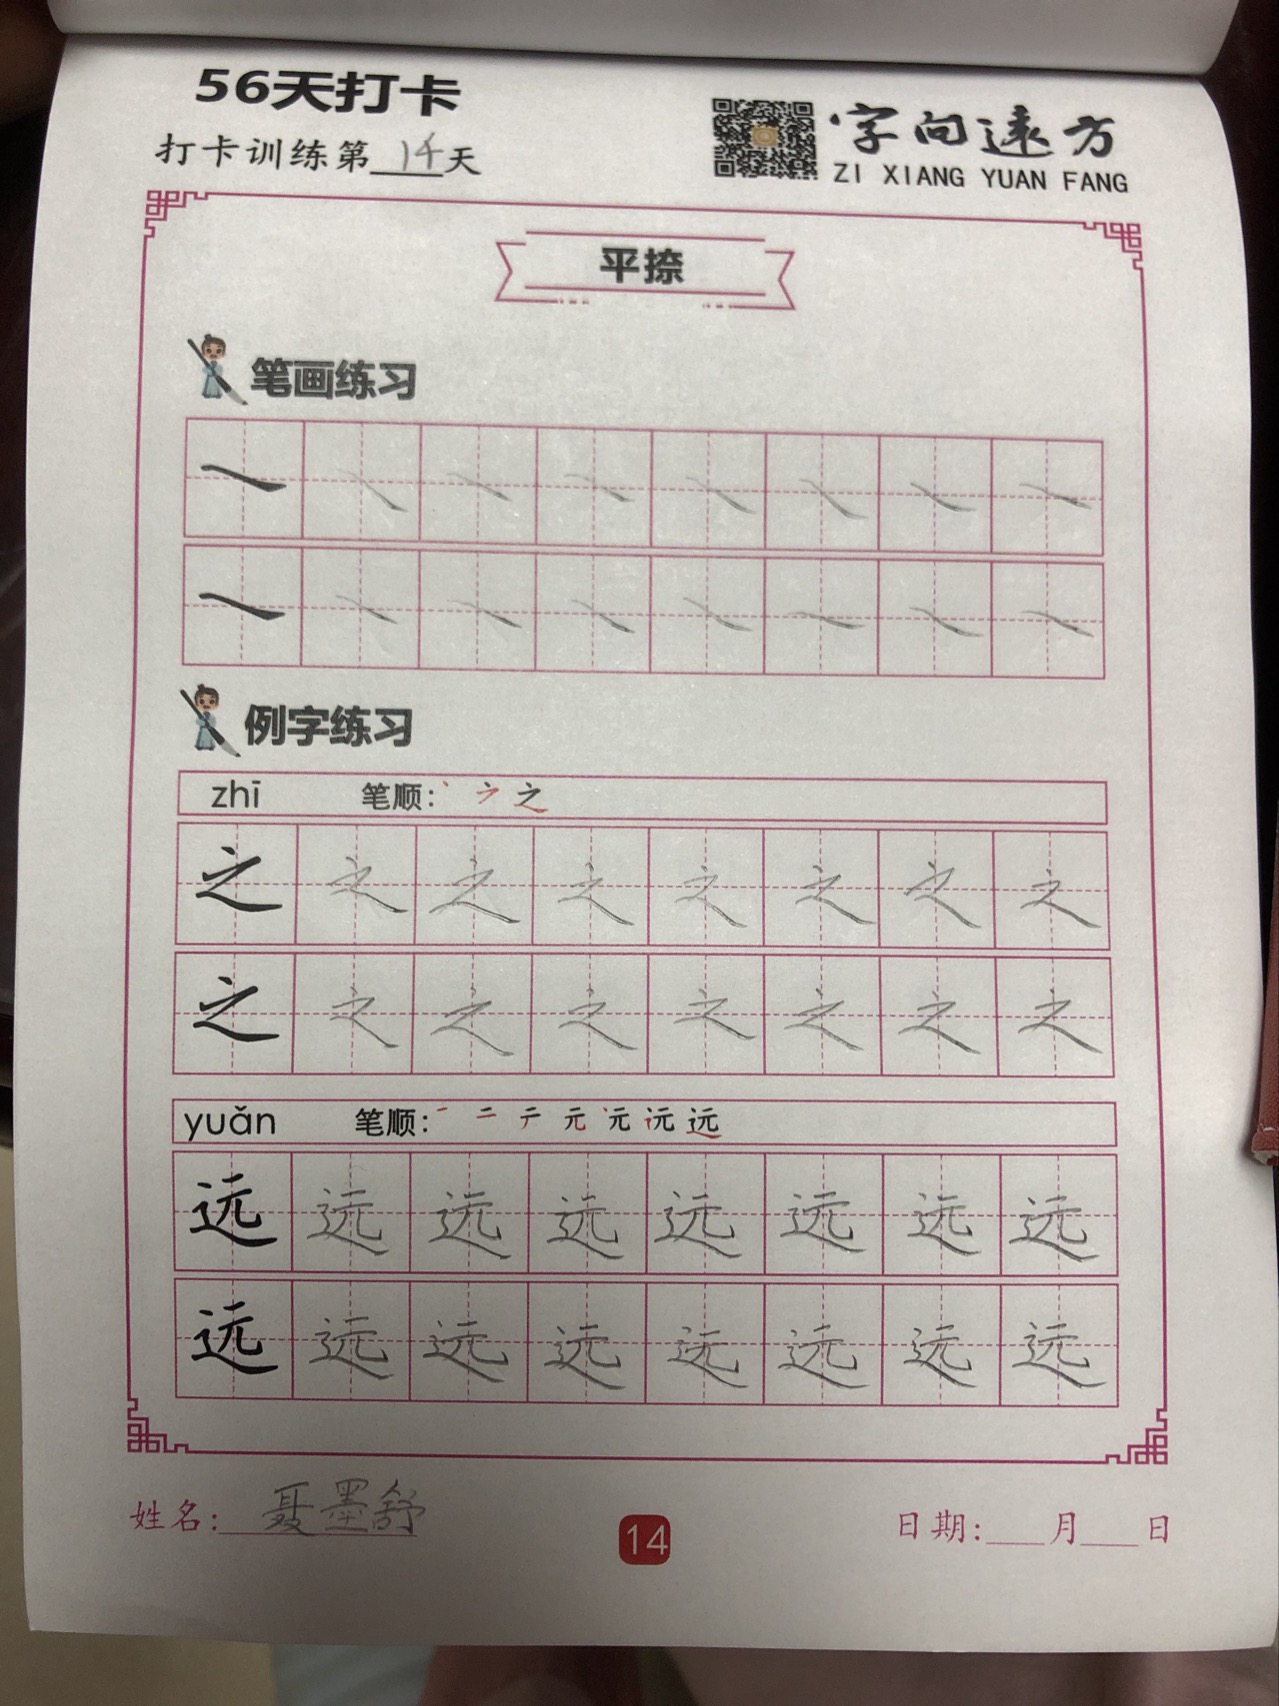 56天打卡
打卡训练第14天
字向遠方
ZI XIANG YUAN FANG
平捺
笔画练习
例字练习
zhī 笔顺: 丶 ㇇ 之
之 之 之 之 之 之 之 之
之 之 之 之 之 之 之 之
yuǎn 笔顺: 一 二 テ 元 元 远 远
远 远 远 远 远 远 远 远
远 远 远 远 远 远 远 远
姓名: 聂墨舒
14
日期: 月 日